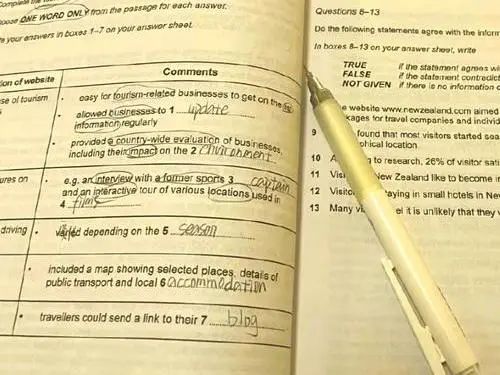 Complete the
Choose ONE WORD ONLY from the passage for each answer.
Write your answers in boxes 1–7 on your answer sheet.
ion of website
Comments
se of tourism
• easy for tourism-related businesses to get on the list
• allowed businesses to 1 update
information regularly
• provided a country-wide evaluation of businesses,
including their impact on the 2 environment
ures on
• e.g. an interview with a former sports 3 captain
and an interactive tour of various locations used in
4 films
driving
• varied depending on the 5 season
• included a map showing selected places, details of
public transport and local 6 accommodation
• travellers could send a link to their 7 blog
Questions 8–13
Do the following statements agree with the inform
In boxes 8–13 on your answer sheet, write
TRUE if the statement agrees wi
FALSE if the statement contradict
NOT GIVEN if there is no information o
e website www.newzealand.com aimed
kages for travel companies and individ
9 found that most visitors started sea
phical location.
10 A to research, 26% of visitor sat
11 Visi New Zealand like to become in
12 Visito taying in small hotels in New
13 Many vi el it is unlikely that they w